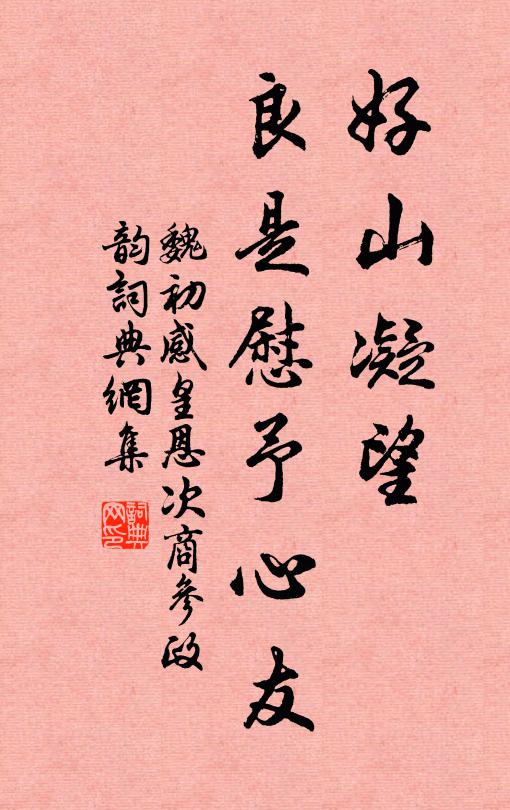 好山凝望
良是慰予心友
魏初感皇恩次商參政
韵詞典網集
詞典
网印